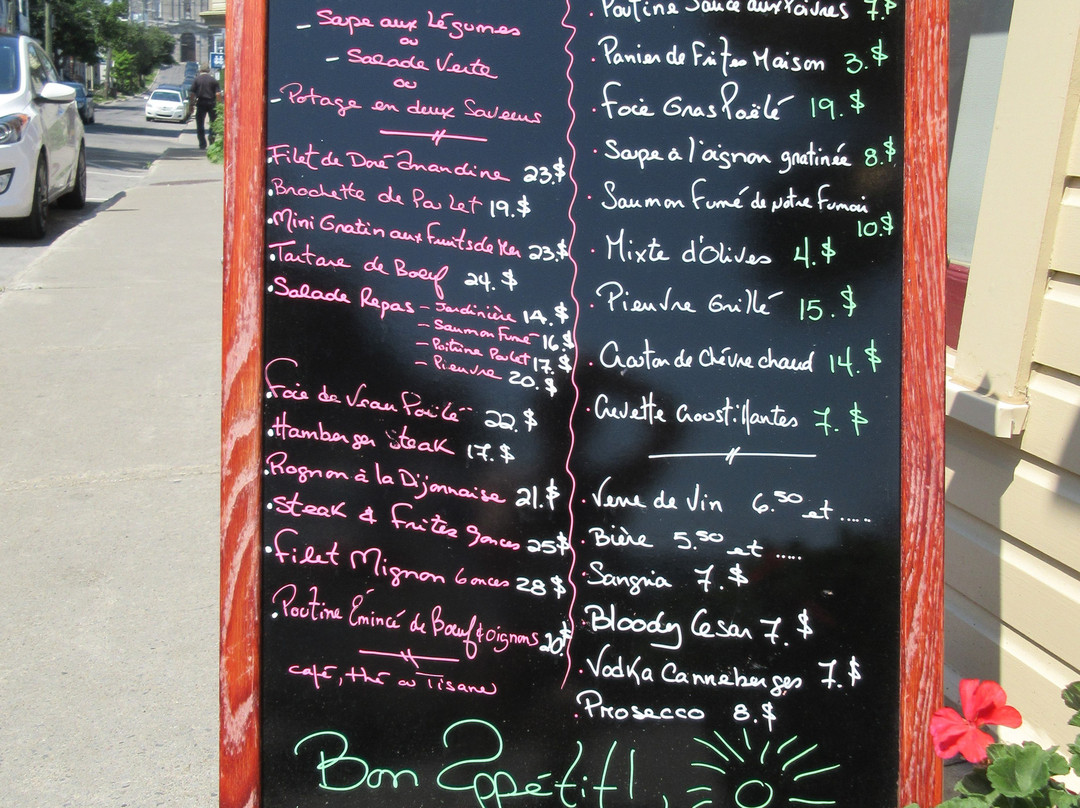 - Sape aux Légumes
ou
- Salade Verte
ou
- Potage en deux Saveurs
.Filet de Doré Amandine 23.$
.Brochette de Poulet 19.$
.Mini Gratin aux Fruits de Mer 23.$
.Tartare de Boeuf 24.$
.Salade Repas - Jardinière 14.$
- Saumon Fumé 16.$
- Poitrine Poulet 17.$
- Pieuvre 20.$
.Foie de Veau Poêlé 22.$
.Hamberger Steak 17.$
.Rognon à la Dijonnaise 21.$
.Steak & Frites 9onces 25$
.Filet Mignon 6onces 28$
.Poutine Émincé de Boeuf & Oignons 20$
café, thé ou Tisane
.Poutine Sauce aux Poivres 7.$
.Panier de Frites Maison 3.$
.Foie Gras Poêlé 19.$
.Sape à l'oignon gratinée 8.$
.Saumon Fumé de notre Fumoir
10.$
.Mixte d'Olives 4.$
.Pieuvre Grillé 15.$
.Croton de Chévre chaud 14.$
.Crevette Croustillantes 7.$
.Verre de Vin 6.50 et .....
.Bière 5.50 et .....
.Sangria 7.$
Bloody Cesar 7.$
.Vodka Canneberges 7.$
.Prosecco 8.$
Bon Appétit!